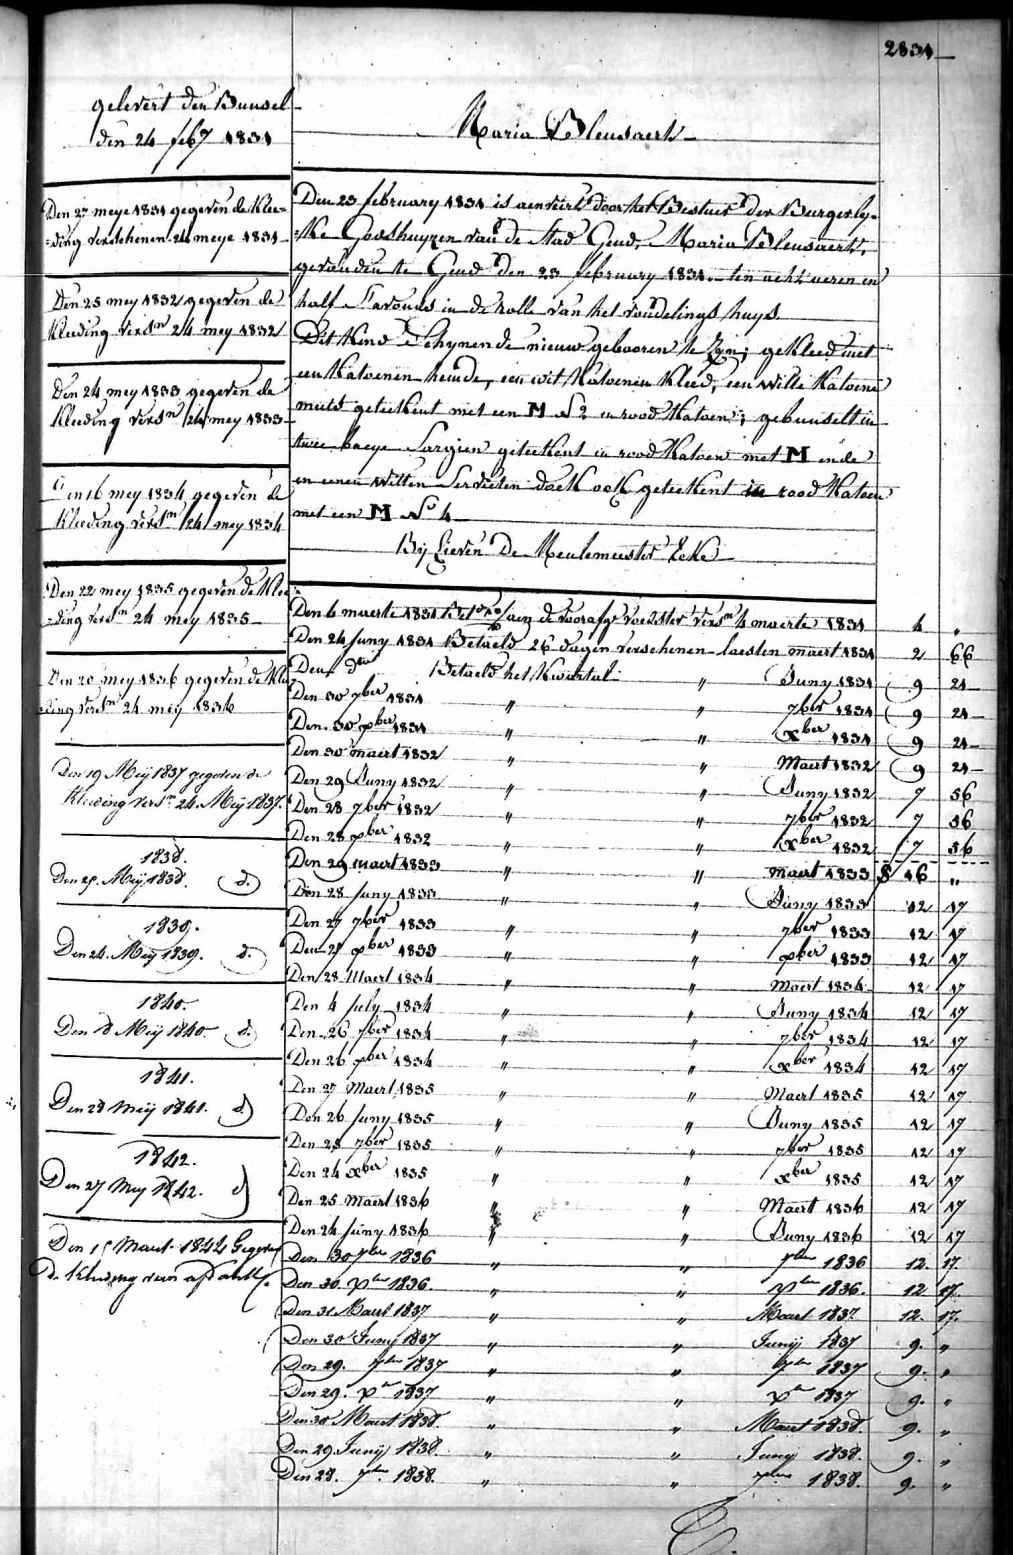 2834
gelevert den Bunsel
den 24 feb 1831
Maria Bleusaert
Den 27 meye 1831 gegeven de Klee=
=ding verschenen 24 meye 1831
Den 25 mey 1832 gegeven de
Kleeding versn 24 mey 1832
Den 24 mey 1833 gegeven de
Kleeding versn 24 mey 1833
Den 16 mey 1834 gegeven de
Kleeding versn 24 mey 1834
Den 22 mey 1835 gegeven de Klee=
=ding versn 24 mey 1835
Den 20 mey 1836 gegeven de Klee
ding versn 24 mey 1836
Den 19 Meÿ 1837 gegeven de
Kleeding versn 24 Meÿ 1837.
1838.
Den 25. Meÿ 1838. d.
1839.
Den 24. Meÿ 1839. d.
1840.
Den 18 Meÿ 1840. d.
1841.
Den 28 Meÿ 1841. d
1842.
Den 27 Mey 1842. d
Den 15 Maart 1844 Gegeven
de Kleeding
Den 23 february 1831 is aenveirt door het Bestuer der Burgerly=
=ke Godshuyzen van de Stad Gend, Maria Bleusaert,
gevonden te Gend den 23 february 1831. ten acht ueren en
half S'avonds in de rolle van het vondelings huys
Dit Kind Schynende nieuw gebooren te Zyn; gekleed met
een Katoenen hemde, een wit Katoenen Kleed, een witte Katoene
muts geteekent met een M N 2 in rood Katoen; gebunselt in
twee baeye Sargien geteekent in rood Katoen met M ende
in eenen Witten Servieten doek ook geteekent in rood Katoen
met een M No 4
Bij Lieven De Meulemeester Eeke
Den 6 maerte 1831 de voorafge voedster versn 4 maerte 1831 4 "
Den 24 Juny 1831 Betaeld 26 dagen verschenen laesten maert 1831 2 66
Den do Betaeld het Kwartal " Juny 1831 9 24
Den 30 7ber 1831 " " 7ber 1831 9 24
Den 30 xber 1831 " " xber 1831 9 24
Den 30 maert 1832 " " Maert 1832 9 24
Den 29 Juny 1832 " " Juny 1832 7 56
Den 28 7ber 1832 " " 7ber 1832 7 56
Den 28 xber 1832 " " xber 1832 7 56
Den 29 maert 1833 " " maert 1833 § 16 "
Den 28 Juny 1833 " " Juny 1833 12 17
Den 27 7ber 1833 " " 7ber 1833 12 17
Den 27 xber 1833 " " xber 1833 12 17
Den 28 Maert 1834 " " Maert 1834 12 17
Den 4 July 1834 " " Juny 1834 12 17
Den 26 7ber 1834 " " 7ber 1834 12 17
Den 26 xber 1834 " " xber 1834 12 17
Den 27 Maert 1835 " " Maert 1835 12 17
Den 26 Juny 1835 " " Juny 1835 12 17
Den 25 7ber 1835 " " 7ber 1835 12 17
Den 24 xber 1835 " " xber 1835 12 17
Den 25 Maert 1836 " " Maert 1836 12 17
Den 24 Juny 1836 " " Juny 1836 12 17
Den 30 7ber 1836 " " 7ber 1836 12. 17.
Den 30. Xber 1836. " " Xber 1836. 12 17.
Den 31 Maert 1837 " " Maert 1837. 12. 17.
Den 30 Junÿ 1837 " " Junÿ 1837 9. "
Den 29. 7ber 1837 " " 7ber 1837 9. "
Den 29. Xr 1837 " " Xr 1837 9. "
Den 30 Maert 1838. " " Maert 1838. 9. "
Den 29 Junÿ 1838. " " Junÿ 1838. 9. "
Den 28. 7ber 1838. " " 7ber 1838. 9. "